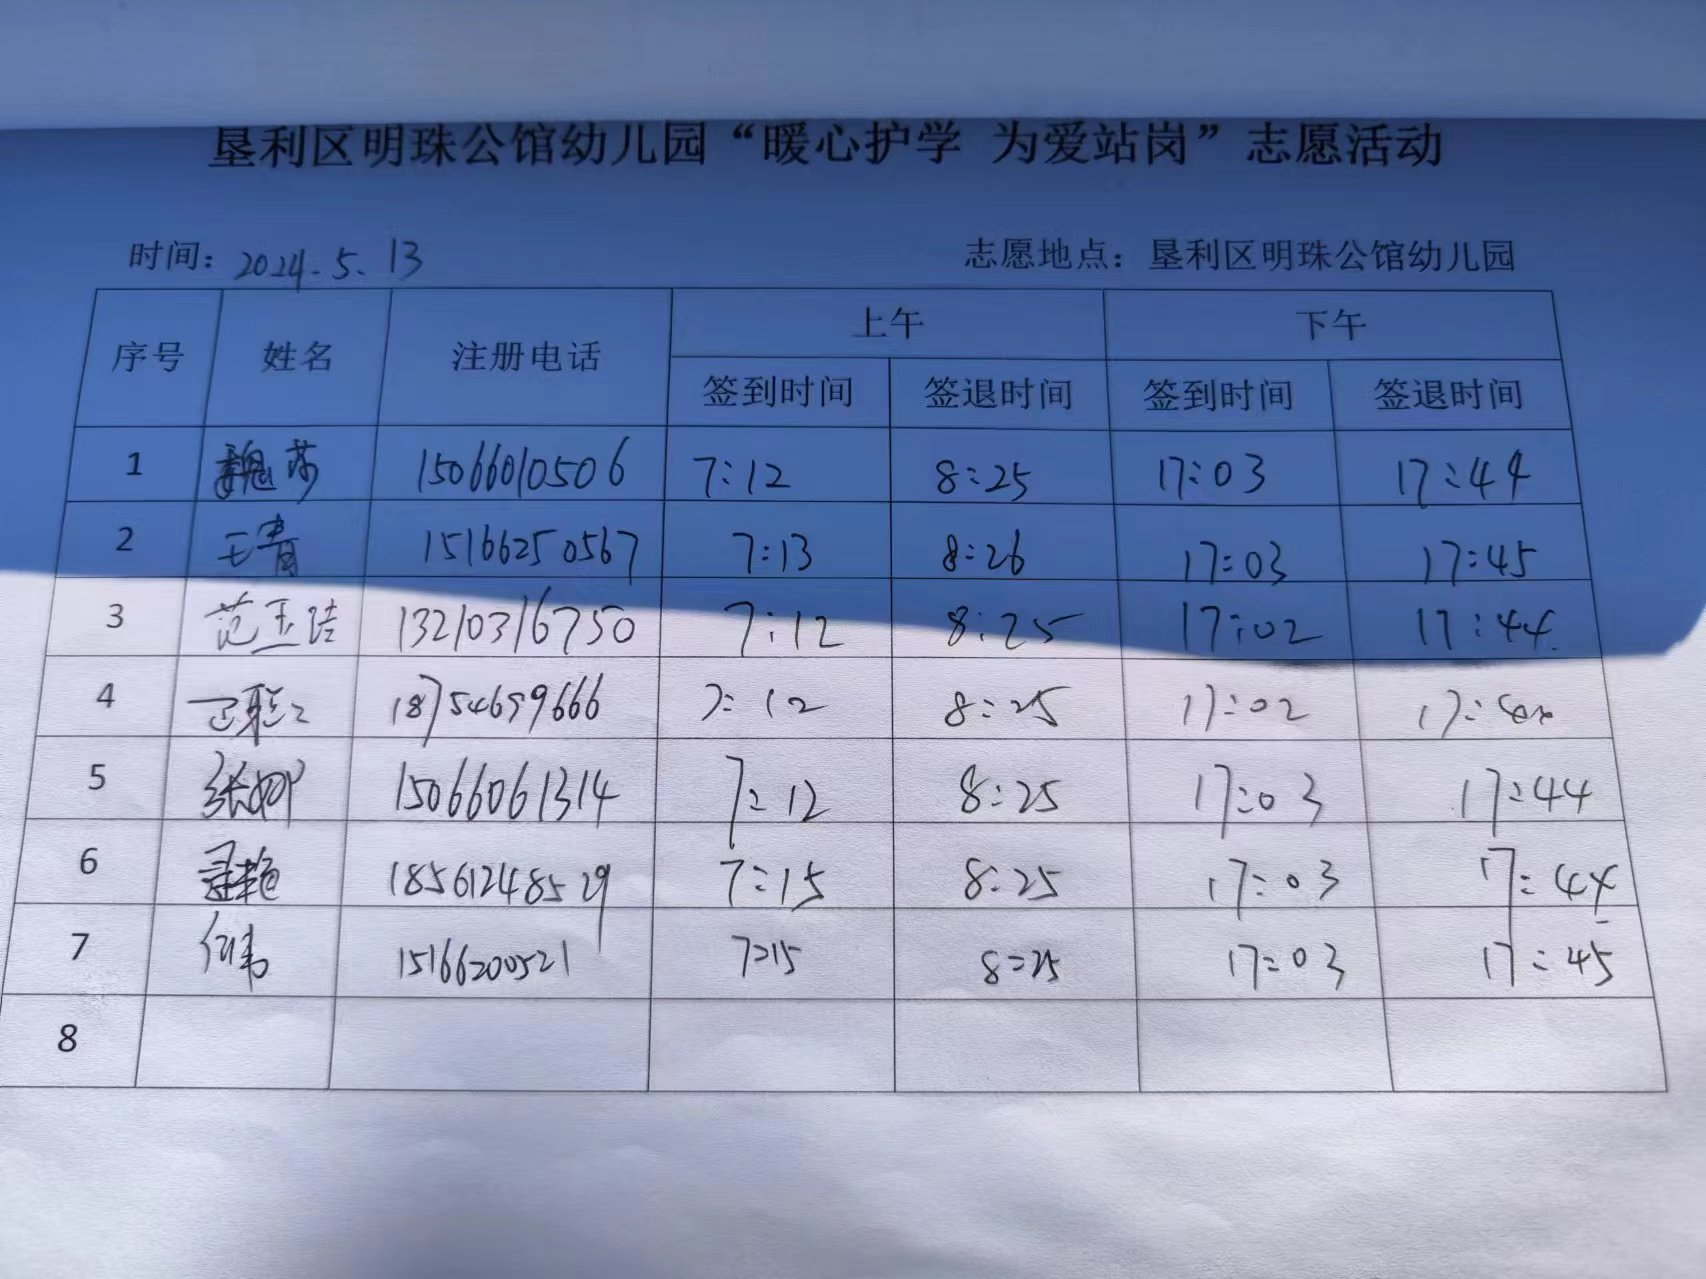 垦利区明珠公馆幼儿园“暖心护学 为爱站岗”志愿活动
时间：2024.5.13 志愿地点：垦利区明珠公馆幼儿园
上午 下午
序号 姓名 注册电话
签到时间 签退时间 签到时间 签退时间
1 魏莎 15066010506 7:12 8:25 17:03 17:44
2 王青 15166250567 7:13 8:26 17:03 17:45
3 范玉洁 13210316750 7:12 8:25 17:02 17:44
4 18754699666 7:12 8:25 17:02
5 张娜 15066061314 7:12 8:25 17:03 17:44
6 18561248529 7:15 8:25 17:03 17:44
7 15166200521 7:15 8:25 17:03 17:45
8